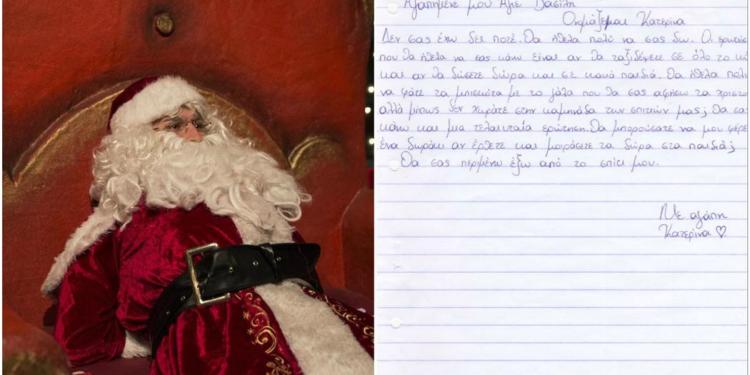 Αγαπημένε μου Άγιε Βασίλη
Ονομάζομαι Κατερίνα
Δεν σας έχω δει ποτέ. Θα ήθελα πολύ να σας δω. Οι
που θα ήθελα να σας κάνω είναι αν θα ταξιδέψετε σε όλο το
και αν θα δώσετε δώρα και σε κακά παιδιά. Θα ήθελα
να φάτε τα μπισκότα με το γάλα που θα σας αφήσω τα
αλλά μήπως δεν χωράτε στην καμηνάδα των σπιτιών μας; Θα
κάνω και μια τελευταία ερώτηση. Θα μπορούσατε να μου
ένα δωράκι αν έρθετε και μοιράσετε τα δώρα στα παιδιά;
Θα σας περιμένω έξω από το σπίτι μου.
Με αγάπη
Κατερίνα ♡